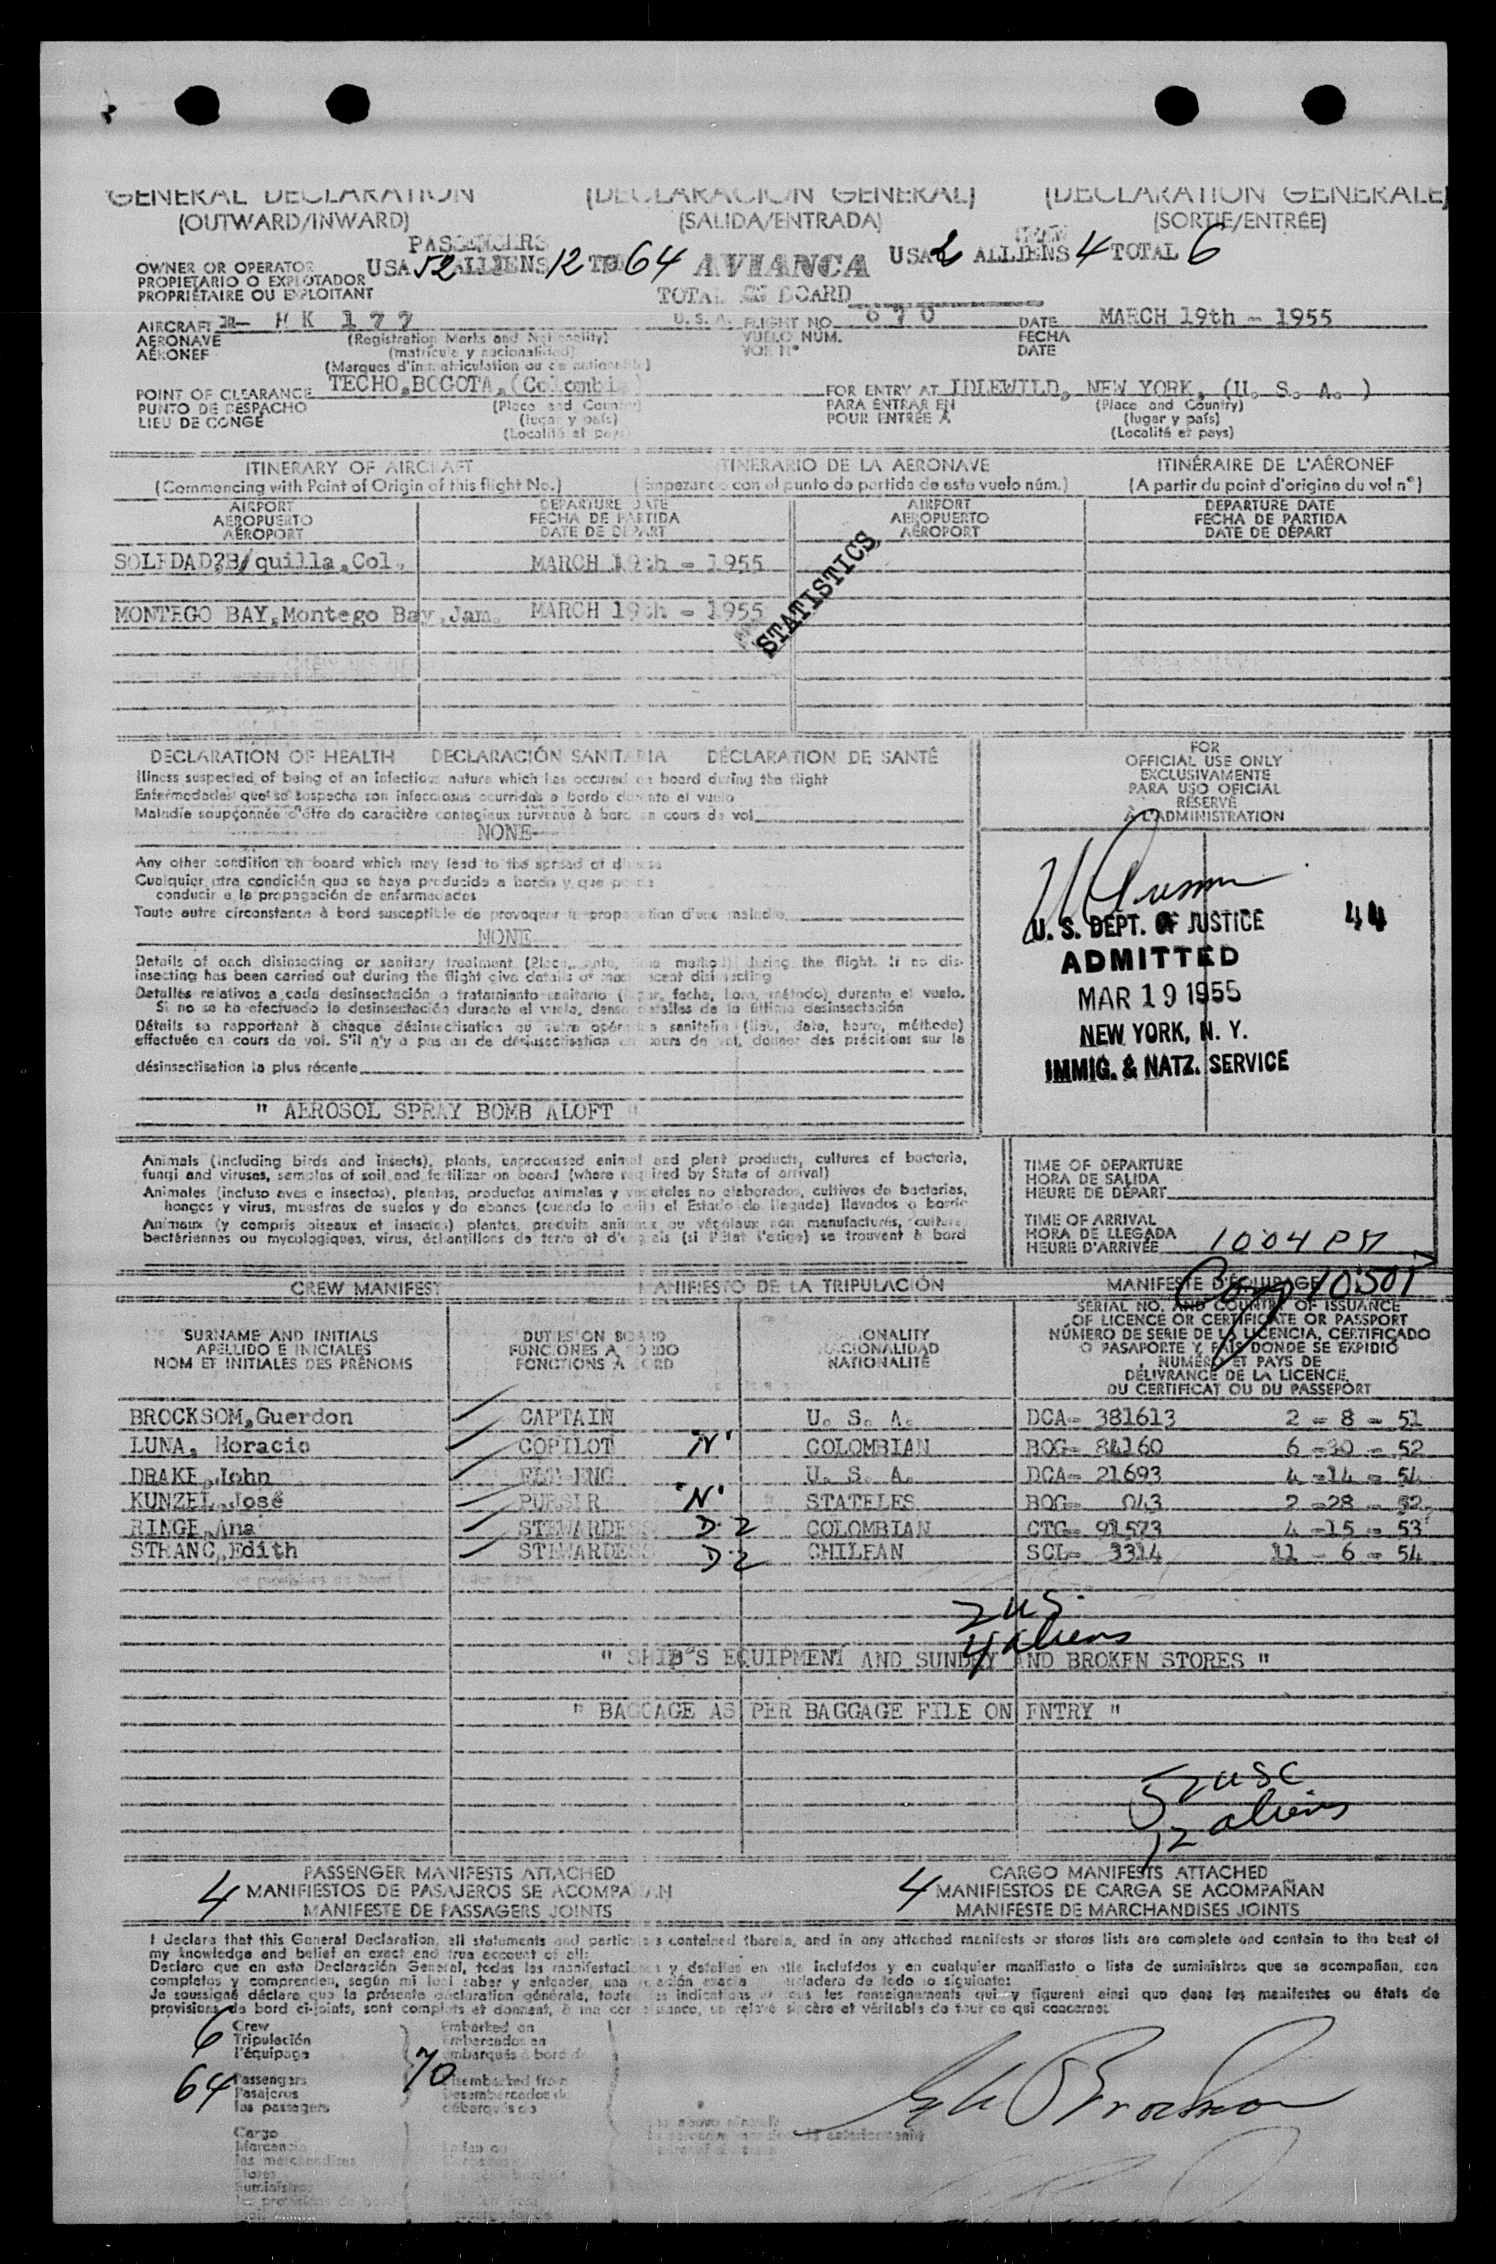 GENERAL DECLARATION (DECLARACION GENERAL) (DECLARATION GENERALE)
(OUTWARD/INWARD) (SALIDA/ENTRADA) (SORTIE/ENTRÉE)
PASSENGERS
OWNER OR OPERATOR USA 52 ALLIENS 12 64 AVIANCA USA 2 ALLIENS 4 TOTAL 6
PROPIETARIO O EXPLOTADOR
PROPRIÉTAIRE OU EXPLOITANT TOTAL ON BOARD
AIRCRAFT HK 177 U. S. A. FLIGHT NO. 670 DATE MARCH 19th - 1955
AERONAVE (Registration Marks and Nationality) VUELO NUM. FECHA
AÉRONEF (matrícula y nacionalidad) VOL N° DATE
(Marques d'immatriculation ou de nationalité)
POINT OF CLEARANCE TECHO, BOGOTA, (Colombia) FOR ENTRY AT IDLEWILD, NEW YORK, (U. S. A. )
PUNTO DE DESPACHO (Place and Country) PARA ENTRAR EN (Place and Country)
LIEU DE CONGÉ (lugar y país) POUR ENTRÉE A (lugar y país)
(Localité et pays) (Localité et pays)
ITINERARY OF AIRCRAFT ITINERARIO DE LA AERONAVE ITINÉRAIRE DE L'AÉRONEF
(Commencing with Point of Origin of this flight No.) (empezando con el punto de partida de este vuelo núm.) (A partir du point d'origine du vol n°)
AIRPORT DEPARTURE DATE AIRPORT DEPARTURE DATE
AEROPUERTO FECHA DE PARTIDA AEROPUERTO FECHA DE PARTIDA
AÉROPORT DATE DE DÉPART AÉROPORT DATE DE DÉPART
SOLEDAD?B/quilla,Col. MARCH 19th - 1955
MONTEGO BAY,Montego Bay,Jam. MARCH 19th - 1955
STATISTICS
DECLARATION OF HEALTH DECLARACIÓN SANITARIA DÉCLARATION DE SANTÉ
Illness suspected of being of an infectious nature which has occured on board during the flight
Enfermedades que se sospecha son infecciosas ocurridas a bordo durante el vuelo
Maladie soupçonnée d'être de caractère contagieux survenue à bord en cours de vol
NONE
Any other condition on board which may lead to the spread of disease
Cualquier otra condición que se haya producido a bordo y que pueda
conducir a la propagación de enfermedades
Toute autre circonstance à bord susceptible de provoquer la propagation d'une maladie
NONE
Details of each disinsecting or sanitary treatment (Place, date, time, method) during the flight. If no dis-
insecting has been carried out during the flight give details of most recent disinsecting
Detalles relativos a cada desinsectación o tratamiento sanitario (lugar, fecha, hora, método) durante el vuelo.
Si no se ha efectuado la desinsectación durante el vuelo, dense detalles de la última desinsectación
Détails se rapportant à chaque désinsectisation ou autre opération sanitaire (lieu, date, heure, méthode)
effectuée en cours de vol. S'il n'y a pas eu de désinsectisation en cours de vol, donner des précisions sur la
désinsectisation la plus récente
" AEROSOL SPRAY BOMB ALOFT "
FOR
OFFICIAL USE ONLY
EXCLUSIVAMENTE
PARA USO OFICIAL
RÉSERVÉ
À L'ADMINISTRATION
U. S. DEPT. OF JUSTICE 44
ADMITTED
MAR 19 1955
NEW YORK, N. Y.
IMMIG. & NATZ. SERVICE
Animals (including birds and insects), plants, unprocessed animal and plant products, cultures of bacteria,
fungi and viruses, samples of soil and fertilizer on board (where required by State of arrival)
Animales (incluso aves e insectos), plantas, productos animales y vegetales no elaborados, cultivos de bacterias,
hongos y virus, muestras de suelos y de abonos (cuando lo exija el Estado de llegada) llevados a bordo
Animaux (y compris oiseaux et insectes) plantes, produits animaux ou végétaux non manufacturés, cultures
bactériennes ou mycologiques, virus, échantillons de terre et d'engrais (si l'État l'exige) se trouvant à bord
TIME OF DEPARTURE
HORA DE SALIDA
HEURE DE DÉPART
TIME OF ARRIVAL
HORA DE LLEGADA
HEURE D'ARRIVÉE 1004 PM
CREW MANIFEST MANIFIESTO DE LA TRIPULACIÓN MANIFESTE D'ÉQUIPAGE
SURNAME AND INITIALS DUTIES ON BOARD NATIONALITY SERIAL NO. AND COUNTRY OF ISSUANCE
APELLIDO E INICIALES FUNCIONES A BORDO NACIONALIDAD OF LICENCE OR CERTIFICATE OR PASSPORT
NOM ET INITIALES DES PRÉNOMS FONCTIONS A BORD NATIONALITÉ NÚMERO DE SERIE DE LA LICENCIA, CERTIFICADO
O PASAPORTE Y PAÍS DONDE SE EXPIDIÓ
NUMÉRO ET PAYS DE
DÉLIVRANCE DE LA LICENCE,
DU CERTIFICAT OU DU PASSEPORT
BROCKSOM,Guerdon CAPTAIN U. S. A. DCA- 381613 2 - 8 - 51
LUNA, Horacio COPILOT "N" COLOMBIAN BOG- 84160 6 -30 - 52
DRAKE,John U. S. A. DCA- 21693 4 -14 - 54
KUNZEL,José PURSER "N" STATELES BOG- 043 2 -28 - 52
RINGE,Ana STEWARDESS D-2 COLOMBIAN CTG- 91573 4 -15 - 53
STRANC,Edith STEWARDESS D-2 CHILEAN SCL- 3314 11 - 6 - 54
2 US.
4 aliens
" SHIP'S EQUIPMENT AND SUNDRY AND BROKEN STORES "
" BAGGAGE AS PER BAGGAGE FILE ON ENTRY "
52 USC
12 aliens
PASSENGER MANIFESTS ATTACHED CARGO MANIFESTS ATTACHED
4 MANIFIESTOS DE PASAJEROS SE ACOMPAÑAN 4 MANIFIESTOS DE CARGA SE ACOMPAÑAN
MANIFESTE DE PASSAGERS JOINTS MANIFESTE DE MARCHANDISES JOINTS
I declare that this General Declaration, all statements and particulars contained therein, and in any attached manifests or stores lists are complete and contain to the best of
my knowledge and belief an exact and true account of all:
Declaro que en esta Declaración General, todas las manifestaciones y detalles en ella incluídos y en cualquier manifiesto o lista de suministros que se acompañan, son
completos y comprenden, según mi leal saber y entender, una relación exacta verdadera de todo lo siguiente:
Je soussigné déclare que la présente déclaration générale, toutes les indications et tous les renseignements qui y figurent ainsi que dans les manifestes ou états de
provisions de bord ci-joints, sont complets et donnent, à ma connaissance, un relevé sincère et véritable de tout ce qui concerne:
6 Crew Embarked on
Tripulación Embarcados en
l'équipage embarqués à bord de
64 Passengers 70 Disembarked from
Pasajeros Desembarcados de
les passagers débarqués de
Cargo
Mercancía
les marchandises
Stores
Suministros